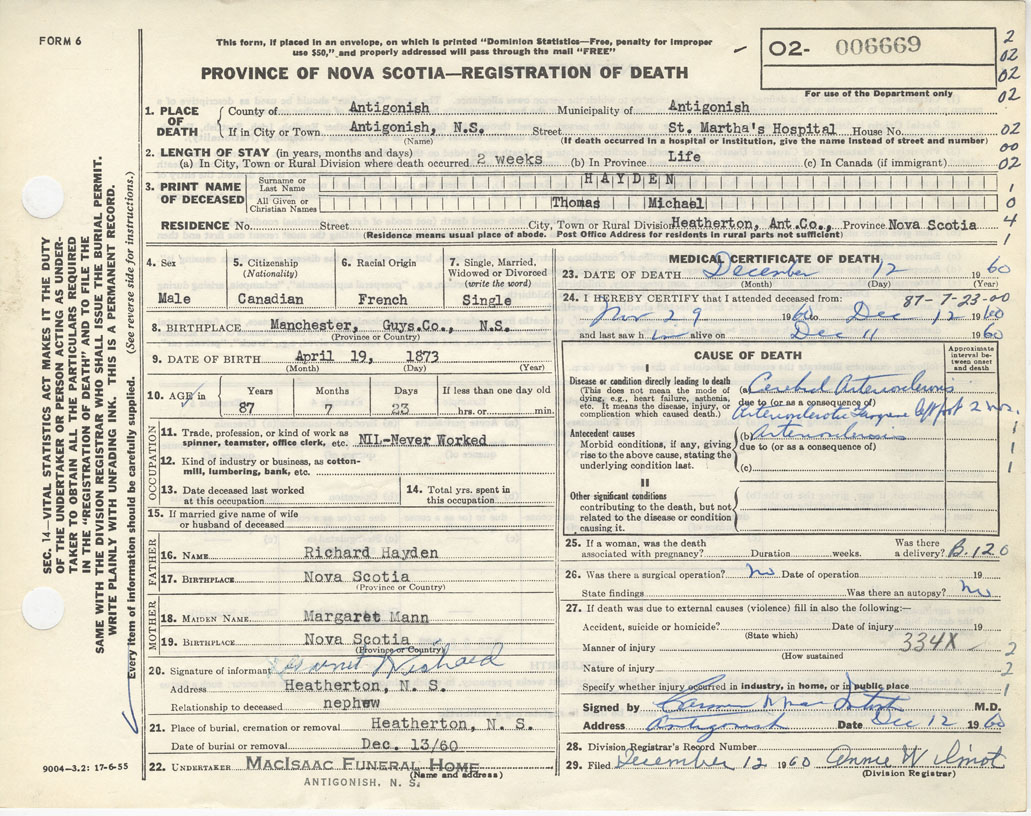 FORM 6
This form, if placed in an envelope, on which is printed "Dominion Statistics—Free, penalty for improper
use $50," and properly addressed will pass through the mail "FREE"
O2- 006669
For use of the Department only
PROVINCE OF NOVA SCOTIA—REGISTRATION OF DEATH
2
02
02
02
02
00
02
1
0
4
1
1. PLACE OF DEATH County of Antigonish Municipality of Antigonish
If in City or Town Antigonish, N.S. Street St. Martha's Hospital House No.
(Name) (If death occurred in a hospital or institution, give the name instead of street and number)
2. LENGTH OF STAY (in years, months and days)
(a) In City, Town or Rural Division where death occurred 2 weeks (b) In Province Life (c) In Canada (if immigrant)
3. PRINT NAME OF DECEASED Surname or Last Name HAYDEN
All Given or Christian Names Thomas Michael
RESIDENCE No. Street City, Town or Rural Division Heatherton, Ant.Co., Province Nova Scotia
(Residence means usual place of abode. Post Office Address for residents in rural parts not sufficient)
4. Sex
Male
5. Citizenship
(Nationality)
Canadian
6. Racial Origin
French
7. Single, Married, Widowed or Divorced
(write the word)
Single
8. BIRTHPLACE Manchester, Guys.Co., N.S.
(Province or Country)
9. DATE OF BIRTH April 19, 1873
(Month) (Day) (Year)
10. AGE in Years Months Days If less than one day old
87 7 23 hrs. or min.
OCCUPATION
11. Trade, profession, or kind of work as
spinner, teamster, office clerk, etc. NIL-Never Worked
12. Kind of industry or business, as cotton-
mill, lumbering, bank, etc.
13. Date deceased last worked
at this occupation
14. Total yrs. spent in
this occupation
15. If married give name of wife
or husband of deceased
FATHER
16. NAME Richard Hayden
17. BIRTHPLACE Nova Scotia
(Province or Country)
MOTHER
18. MAIDEN NAME Margaret Mann
19. BIRTHPLACE Nova Scotia
(Province or Country)
20. Signature of informant
Address Heatherton, N. S.
Relationship to deceased nephew
21. Place of burial, cremation or removal Heatherton, N. S.
Date of burial or removal Dec. 13/60
22. UNDERTAKER MACISAAC FUNERAL HOME
(Name and address)
ANTIGONISH, N. S.
MEDICAL CERTIFICATE OF DEATH
23. DATE OF DEATH December 12 1960
(Month) (Day) (Year)
24. I HEREBY CERTIFY that I attended deceased from: 87-7-23-00
Nov 29 1960 to Dec 12 1960
and last saw h im alive on Dec 11 1960
CAUSE OF DEATH
Approximate interval between onset and death
I
Disease or condition directly leading to death
(This does not mean the mode of
dying, e.g., heart failure, asthenia,
etc. It means the disease, injury, or
complication which caused death.)
(a) Cerebral Arteriosclerosis
due to (or as a consequence of)
Arteriosclerotic Gangrene left foot 2 mos.
Antecedent causes
Morbid conditions, if any, giving
rise to the above cause, stating the
underlying condition last.
(b) Arteriosclerosis
due to (or as a consequence of)
(c)
1
1
1
II
Other significant conditions
contributing to the death, but not
related to the disease or condition
causing it.
25. If a woman, was the death
associated with pregnancy? Duration weeks. Was there
a delivery? B.120
26. Was there a surgical operation? no Date of operation 19
State findings Was there an autopsy? no
27. If death was due to external causes (violence) fill in also the following:—
Accident, suicide or homicide? Date of injury 19
(State which)
Manner of injury 334X 2
(How sustained
Nature of injury 2
Specify whether injury occurred in industry, in home, or in public place 1
Signed by M.D.
Address Antigonish Date Dec 12 1960
28. Division Registrar's Record Number
29. Filed December 12 1960 Annie Wilmot
(Division Registrar)
SEC. 14—VITAL STATISTICS ACT MAKES IT THE DUTY
OF THE UNDERTAKER OR PERSON ACTING AS UNDER-
TAKER TO OBTAIN ALL THE PARTICULARS REQUIRED
IN THE "REGISTRATION OF DEATH" AND TO FILE THE
SAME WITH THE DIVISION REGISTRAR WHO SHALL ISSUE THE BURIAL PERMIT.
WRITE PLAINLY WITH UNFADING INK. THIS IS A PERMANENT RECORD.
Every item of information should be carefully supplied. (See reverse side for instructions.)
9004—3.2: 17-6-55